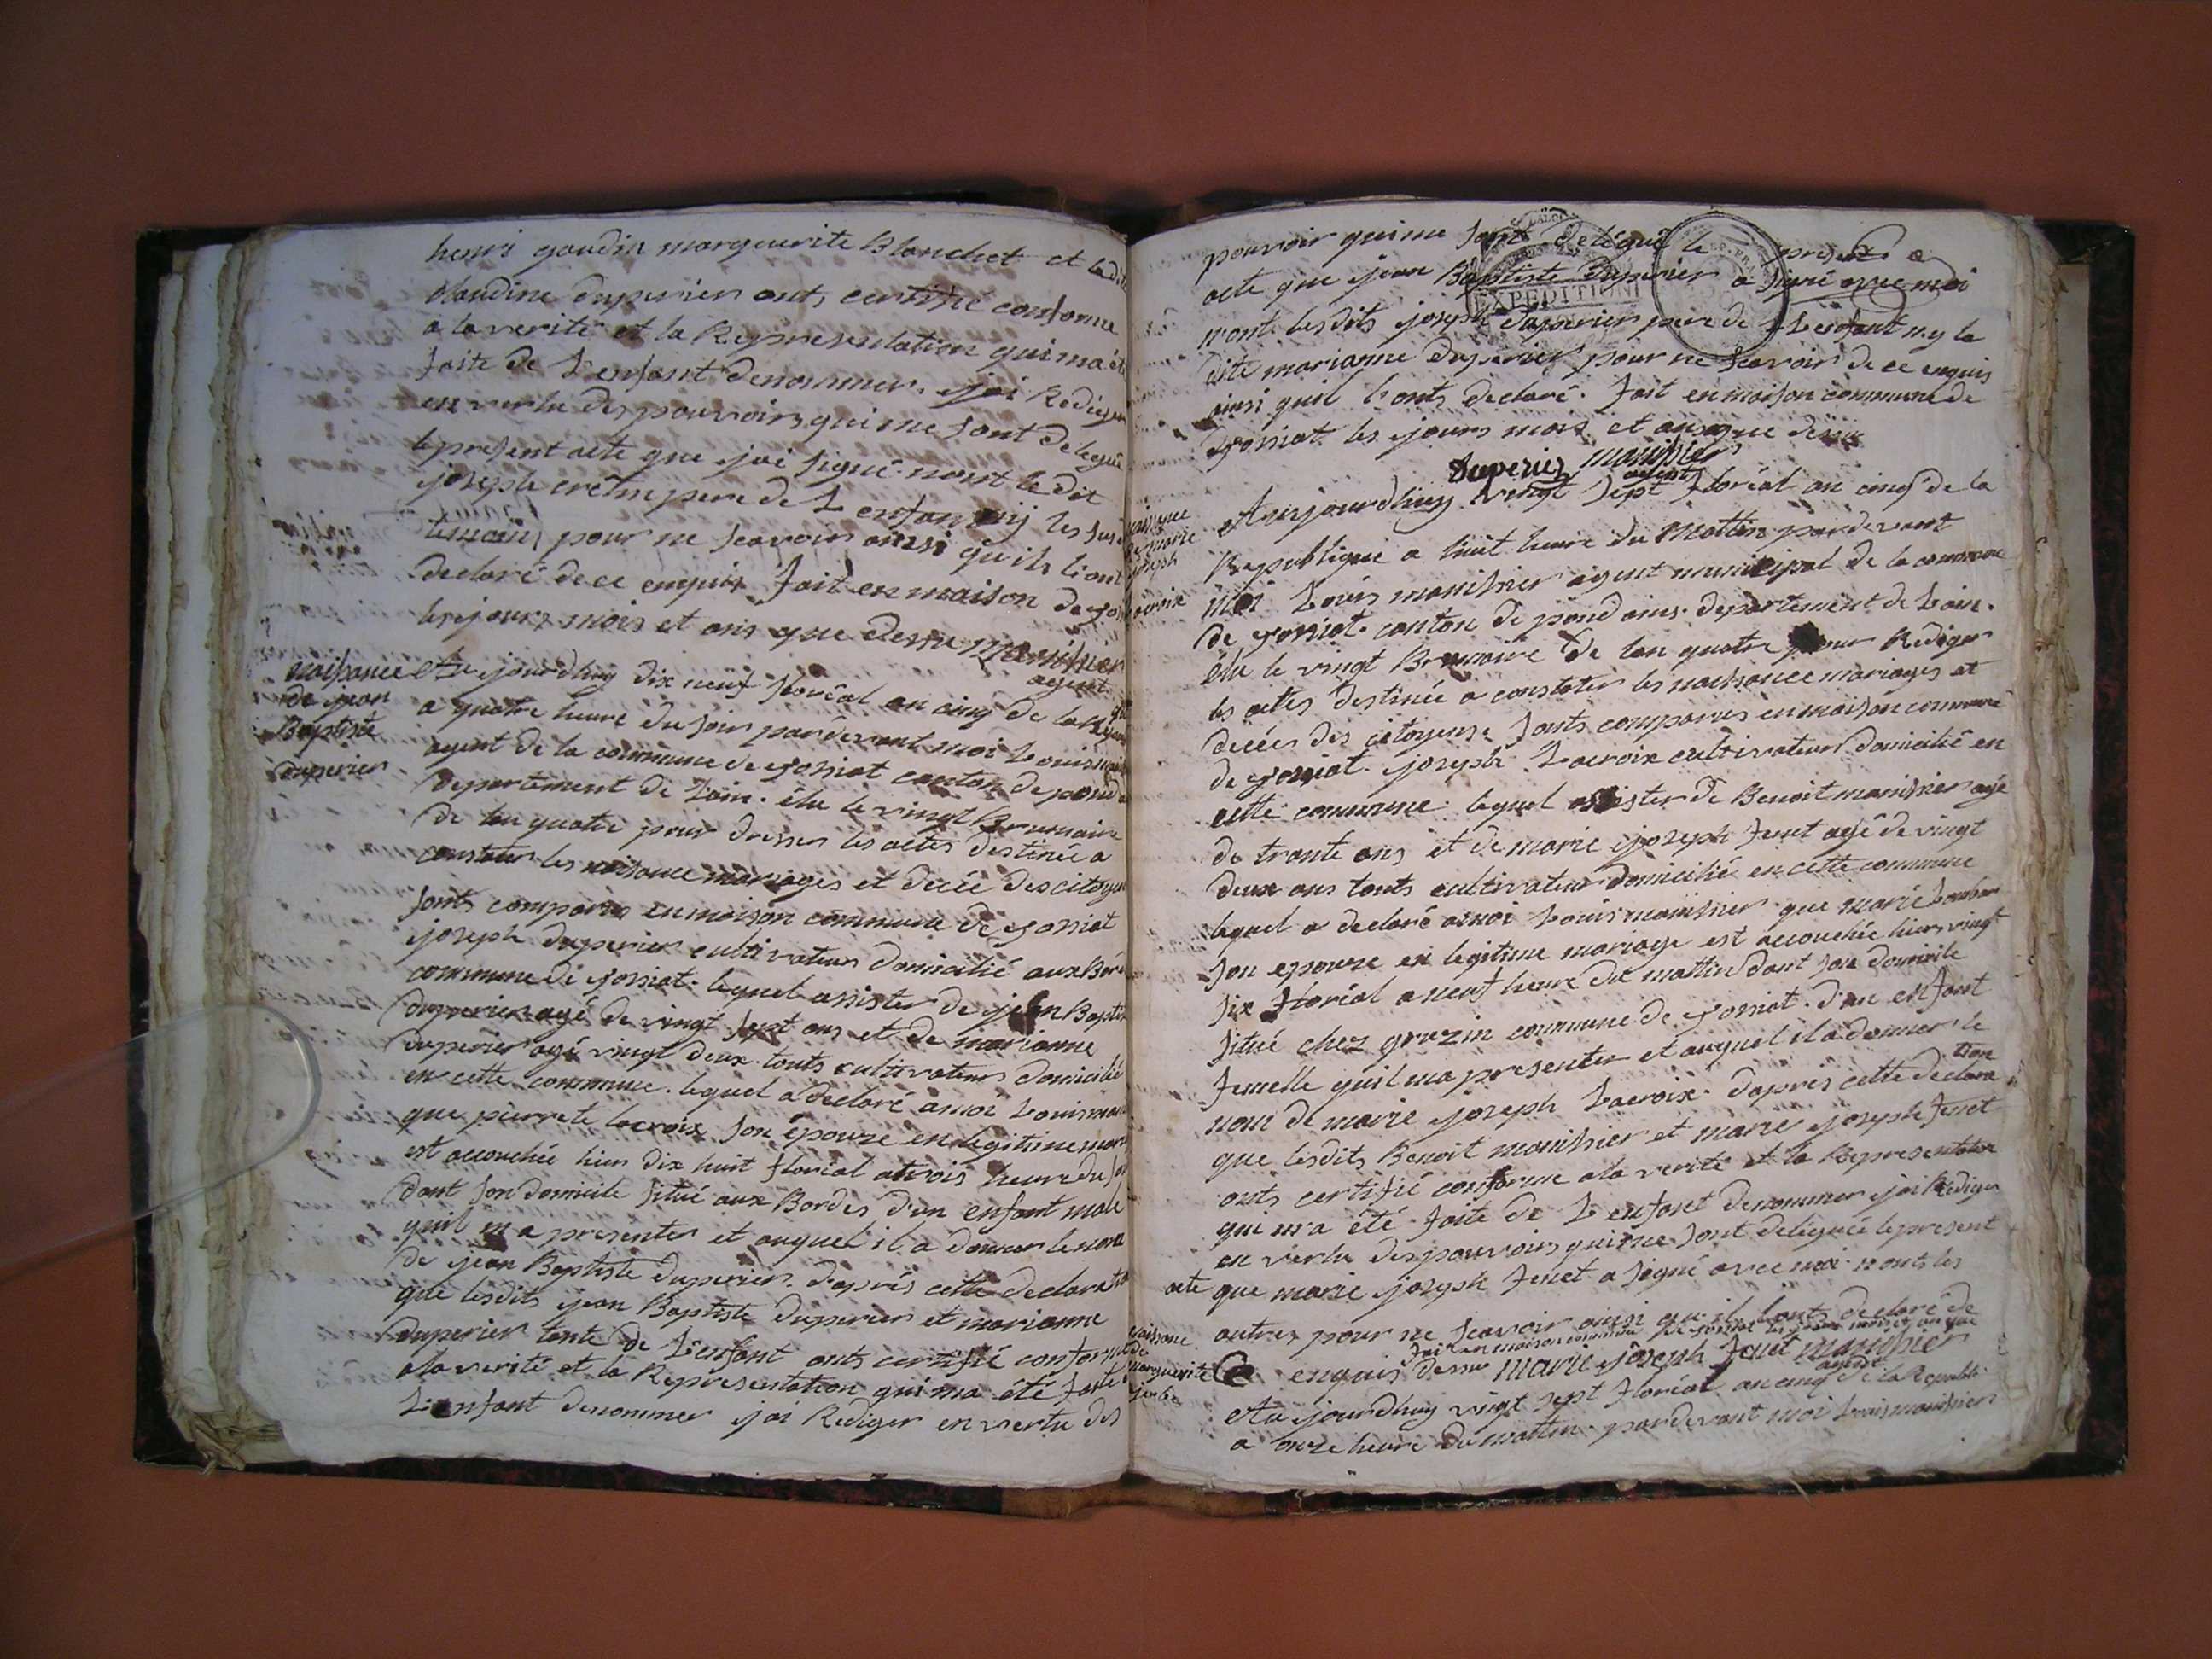 henri goudin marguerite Blanchet et ladite
claudine Duperier onts certifié conforme
a la verité et la Representation qui ma été
faite de L'enfant denommer. jai Rediger
en vertu des pouvoirs qui me sont delegué
le present acte que jai signé nont le dit
joseph crétin pere de L enfant nij les sus
temoins pour ne scavoir ainsi qu'ils lont
declaré de ce enquis fait en maison de
les jours mois et ans que dessu Monihier
agent
naissance
de jean
Baptiste
duperier
Au jourdhuy dix neuf floréal an cinq de la
a quatre heure du soir pardevant moi Louis
agent de la commune de jossiat canton de pond
departement de Lain. élu le vingt Brumaire
de lan quatre pour dresser les actes destinée a
constater les naissance mariages et decée des citoyen
sonts comparus en maison commune de jossiat
joseph duperier cultivateur domicilié aux Bor
commune de jossiat. lequel assister de jean Baptis
duperier agé de vingt sept ans et de marianne
duperier agé vingt deux. touts cultivateurs domicilié
en cette commune. lequel a declaré amoi Louis mon
que pierrete lacroix son épouze en legitime mari
est accouchée hier dix huit floréal a trois heure du
dant son domicile situé aux Bordes d'un enfant male
quil m a presenter et auquel il a donner le nom
de jean Baptiste duperier. d'aprés cette declaratio
que lesdits jean Baptiste duperier et marianne
duperier tante de L'enfant onts certifié conforme
a la verité et la Représentation qui ma été faite
L'enfant denommer jai Rediger en vertu des
pouvoir qui me sont delégué le present
acte que jean Baptiste duperier a signé avec moi
nont lesdits joseph duperier pere de L'enfant ny la
dite marianne duperier pour ne scavoir de ce enquis
ainsi quil lonts declaré. fait en maison commune de
jossiat les jours mois et ans que dessu
EXPEDITION
Duperier monihier
agent
naissance
de marie
joseph
lacroix
Aujourdhuy vingt sept floréal an cinq de la
Republique a huit heure du mattin pardevant
moi Louis monihier agent municipal de la commune
de jossiat canton de pond dains. departement de Lain.
élu le vingt Brumaire de lan quatre pour Rediger
les actes destinée a constater les naissance mariages et
decées des citoyens. sonts comparus en maison commune
de jossiat. joseph Lacroix cultivateur domicilié en
cette commune lequel assister de Benoit monihier agé
de trante ans et de marie joseph Junet agé de vingt
deux ans touts cultivateur domicilié en cette commune
lequel a declaré amoi Louis monihier que marie
son epouze en legitime mariage est accouchée hier vingt
six floréal a neuf heure du mattin dant son domicile
situé chez grazin commune de jossiat. d'un enfant
femelle quil ma presenter et auquel il a donner le
nom de marie joseph Lacroix. d'aprés cette declara
tion
que lesdits Benoit monihier et marie joseph Junet
onts certifié conforme a la verité et la Representation
qui m'a été faite de L enfant denommer jai Rediger
en vertu des pouvoirs qui me sont deleguée le present
acte que marie joseph Junet a signé avec moi nont les
autres pour ne scavoir ainsi qu'ils lonts declaré de
fait en maison commune de jossiat les jours mois et an que
Ce enquis dessu marie joseph Junet monihier
agent
naissance
de
marguerite
Au jourdhuy vingt sept floréal an cinq de la Republi
a onze heure du mattin pardevant moi Louis monihier